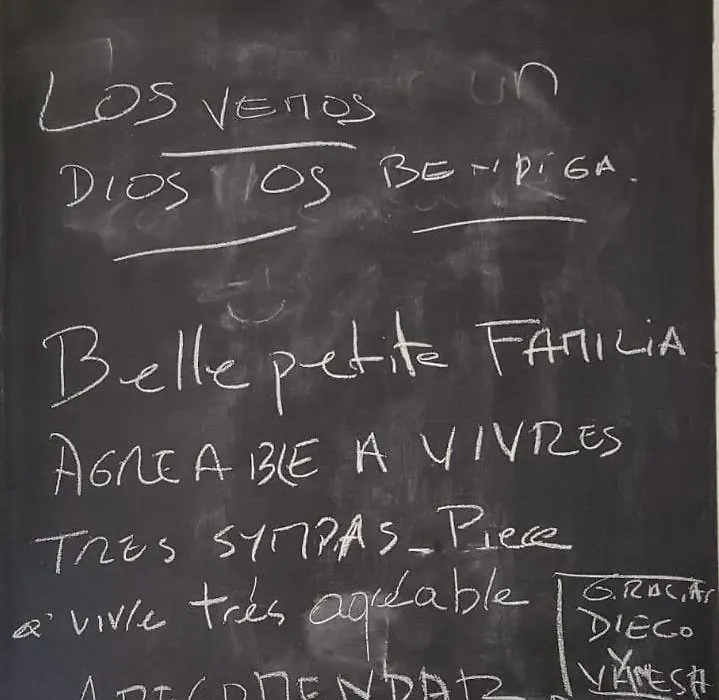 LOS VEMOS un
DIOS LOS BENDIGA.
Belle petite FAMILIA
AGREABLE A VIVRES
TRES SYMPAS - Piece
a' vivre trés agréable
GRACIAS
DIEGO
Y
VANESA
A RECOMENDAR